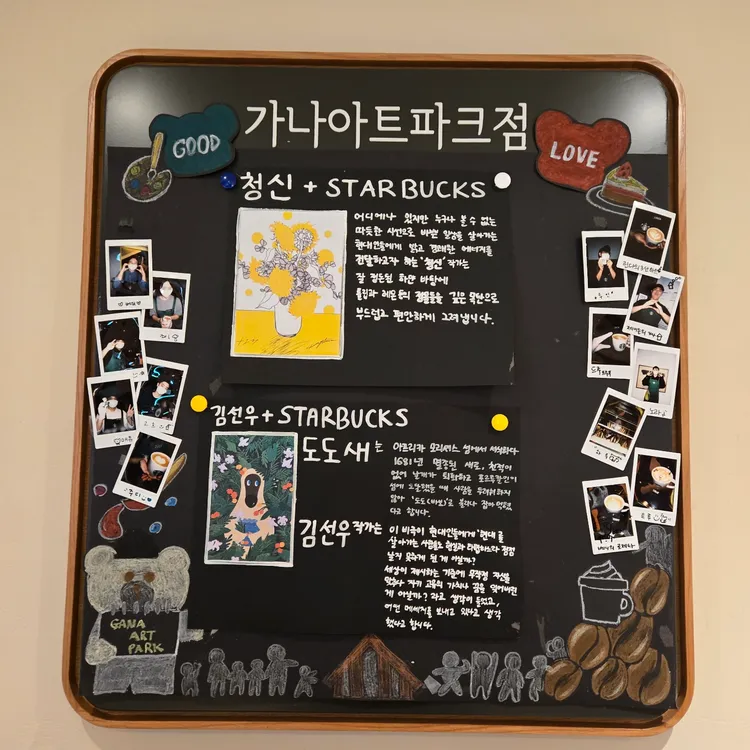 가나아트파크점
GOOD
LOVE
청신 + STARBUCKS
어디에나 있지만 누구나 볼 수 없는
따뜻한 시선으로 바쁜 일상을 살아가는
현대인들에게 맑고 경쾌한 에너지를
전달하고자 하는 "청신" 작가는
잘 정돈된 화면 바탕에
튤립과 레몬 등의 정물들을 깊은 먹선으로
부드럽고 편안하게 그려냅니다.
김선우 + STARBUCKS
도도새는
아프리카 모리셔스 섬에서 서식하다
1681년 멸종된 새로, 천적이
없어 날개가 퇴화하고 포르투갈인이
섬에 도착했을 때 사람을 두려워하지
않아 '도도(바보)'로 불리다
다고 합니다.
김선우 작가는
이 비극이 현대인들에게 '현대를
살아가는 사람들도 현실과 타협하느라 점점
날지 못하게 된 게 아닐까?
세상이 제시하는 기준에 무작정 자신을
맞추다 자기 고유의 가치나 꿈을 잊어버린
게 아닐까? 라고 생각이 들었고,
이런 메세지를 보내고 있다고 생각
했다고 합니다.
GANA
ART
PARK